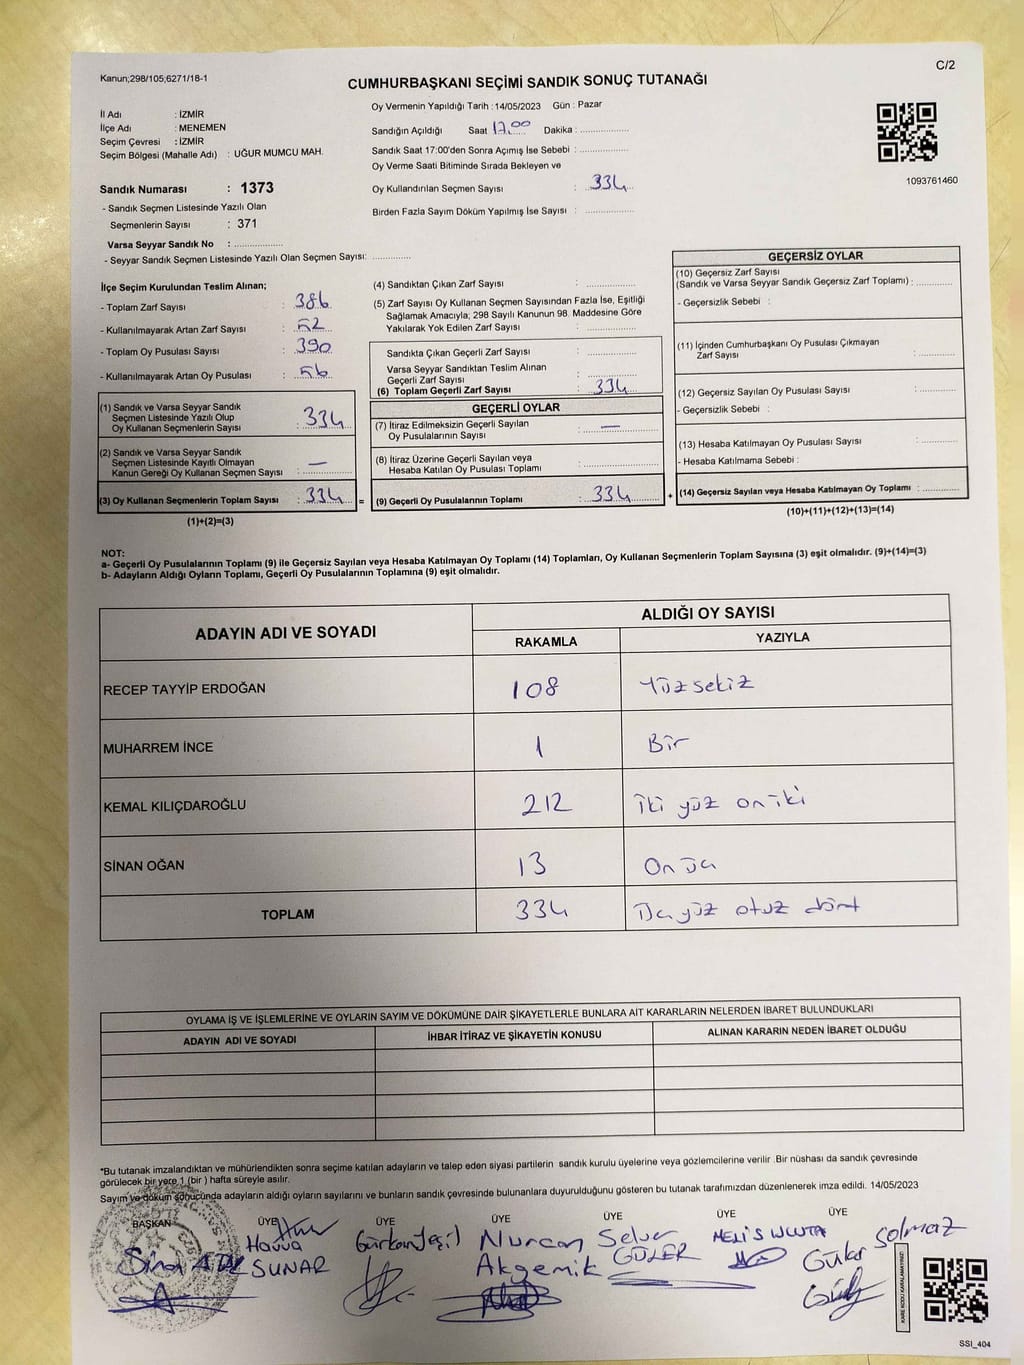 Kanun;298/105;6271/18-1
C/2
CUMHURBAŞKANI SEÇİMİ SANDIK SONUÇ TUTANAĞI
İl Adı : İZMİR
İlçe Adı : MENEMEN
Seçim Çevresi : İZMİR
Seçim Bölgesi (Mahalle Adı) : UĞUR MUMCU MAH.
Sandık Numarası : 1373
- Sandık Seçmen Listesinde Yazılı Olan
Seçmenlerin Sayısı : 371
Varsa Seyyar Sandık No : ..................
- Seyyar Sandık Seçmen Listesinde Yazılı Olan Seçmen Sayısı: ..............
Oy Vermenin Yapıldığı Tarih : 14/05/2023 Gün : Pazar
Sandığın Açıldığı Saat 17.00 Dakika : ..................
Sandık Saat 17:00'den Sonra Açımış İse Sebebi : ..................
Oy Verme Saati Bitiminde Sırada Bekleyen ve
Oy Kullandırılan Seçmen Sayısı : 334
Birden Fazla Sayım Döküm Yapılmış İse Sayısı : ..................
1093761460
İlçe Seçim Kurulundan Teslim Alınan;
- Toplam Zarf Sayısı : 386
- Kullanılmayarak Artan Zarf Sayısı : 52
- Toplam Oy Pusulası Sayısı : 390
- Kullanılmayarak Artan Oy Pusulası : 56
(1) Sandık ve Varsa Seyyar Sandık
Seçmen Listesinde Yazılı Olup
Oy Kullanan Seçmenlerin Sayısı : 334
(2) Sandık ve Varsa Seyyar Sandık
Seçmen Listesinde Kayıtlı Olmayan
Kanun Gereği Oy Kullanan Seçmen Sayısı : —
(3) Oy Kullanan Seçmenlerin Toplam Sayısı : 334 =
(1)+(2)=(3)
(4) Sandıktan Çıkan Zarf Sayısı : ..............
(5) Zarf Sayısı Oy Kullanan Seçmen Sayısından Fazla İse, Eşitliği
Sağlamak Amacıyla; 298 Sayılı Kanunun 98. Maddesine Göre
Yakılarak Yok Edilen Zarf Sayısı : ..............
Sandıkta Çıkan Geçerli Zarf Sayısı : ..............
Varsa Seyyar Sandıktan Teslim Alınan
Geçerli Zarf Sayısı : ..............
(6) Toplam Geçerli Zarf Sayısı : 334
GEÇERLİ OYLAR
(7) İtiraz Edilmeksizin Geçerli Sayılan
Oy Pusulalarının Sayısı : —
(8) İtiraz Üzerine Geçerli Sayılan veya
Hesaba Katılan Oy Pusulası Toplamı : ..............
(9) Geçerli Oy Pusulalarının Toplamı : 334 +
GEÇERSİZ OYLAR
(10) Geçersiz Zarf Sayısı
(Sandık ve Varsa Seyyar Sandık Geçersiz Zarf Toplamı) : ..............
- Geçersizlik Sebebi :
(11) İçinden Cumhurbaşkanı Oy Pusulası Çıkmayan
Zarf Sayısı : ..............
(12) Geçersiz Sayılan Oy Pusulası Sayısı : ..............
- Geçersizlik Sebebi :
(13) Hesaba Katılmayan Oy Pusulası Sayısı : ..............
- Hesaba Katılmama Sebebi :
(14) Geçersiz Sayılan veya Hesaba Katılmayan Oy Toplamı : ..............
(10)+(11)+(12)+(13)=(14)
NOT:
a- Geçerli Oy Pusulalarının Toplamı (9) ile Geçersiz Sayılan veya Hesaba Katılmayan Oy Toplamı (14) Toplamları, Oy Kullanan Seçmenlerin Toplam Sayısına (3) eşit olmalıdır. (9)+(14)=(3)
b- Adayların Aldığı Oyların Toplamı, Geçerli Oy Pusulalarının Toplamına (9) eşit olmalıdır.
ADAYIN ADI VE SOYADI ALDIĞI OY SAYISI
RAKAMLA YAZIYLA
RECEP TAYYİP ERDOĞAN 108 Yüzsekiz
MUHARREM İNCE 1 Bir
KEMAL KILIÇDAROĞLU 212 İki yüz oniki
SİNAN OĞAN 13 On üç
TOPLAM 334 Üç yüz otuz dört
OYLAMA İŞ VE İŞLEMLERİNE VE OYLARIN SAYIM VE DÖKÜMÜNE DAİR ŞİKAYETLERLE BUNLARA AİT KARARLARIN NELERDEN İBARET BULUNDUKLARI
ADAYIN ADI VE SOYADI İHBAR İTİRAZ VE ŞİKAYETİN KONUSU ALINAN KARARIN NEDEN İBARET OLDUĞU
*Bu tutanak imzalandıktan ve mühürlendikten sonra seçime katılan adayların ve talep eden siyasi partilerin sandık kurulu üyelerine veya gözlemcilerine verilir .Bir nüshası da sandık çevresinde
görülecek bir yere 1 (bir ) hafta süreyle asılır.
Sayım ve döküm sonucunda adayların aldığı oyların sayılarını ve bunların sandık çevresinde bulunanlara duyurulduğunu gösteren bu tutanak tarafımızdan düzenlenerek imza edildi. 14/05/2023
BAŞKAN ÜYE ÜYE ÜYE ÜYE ÜYE ÜYE
Havva SUNAR
Gürkan Yeşil
Nurcan Akgemik
Selver GÜLER
Güler Solmaz
KARE KODU KARALAMAYINIZ!
SSI_404